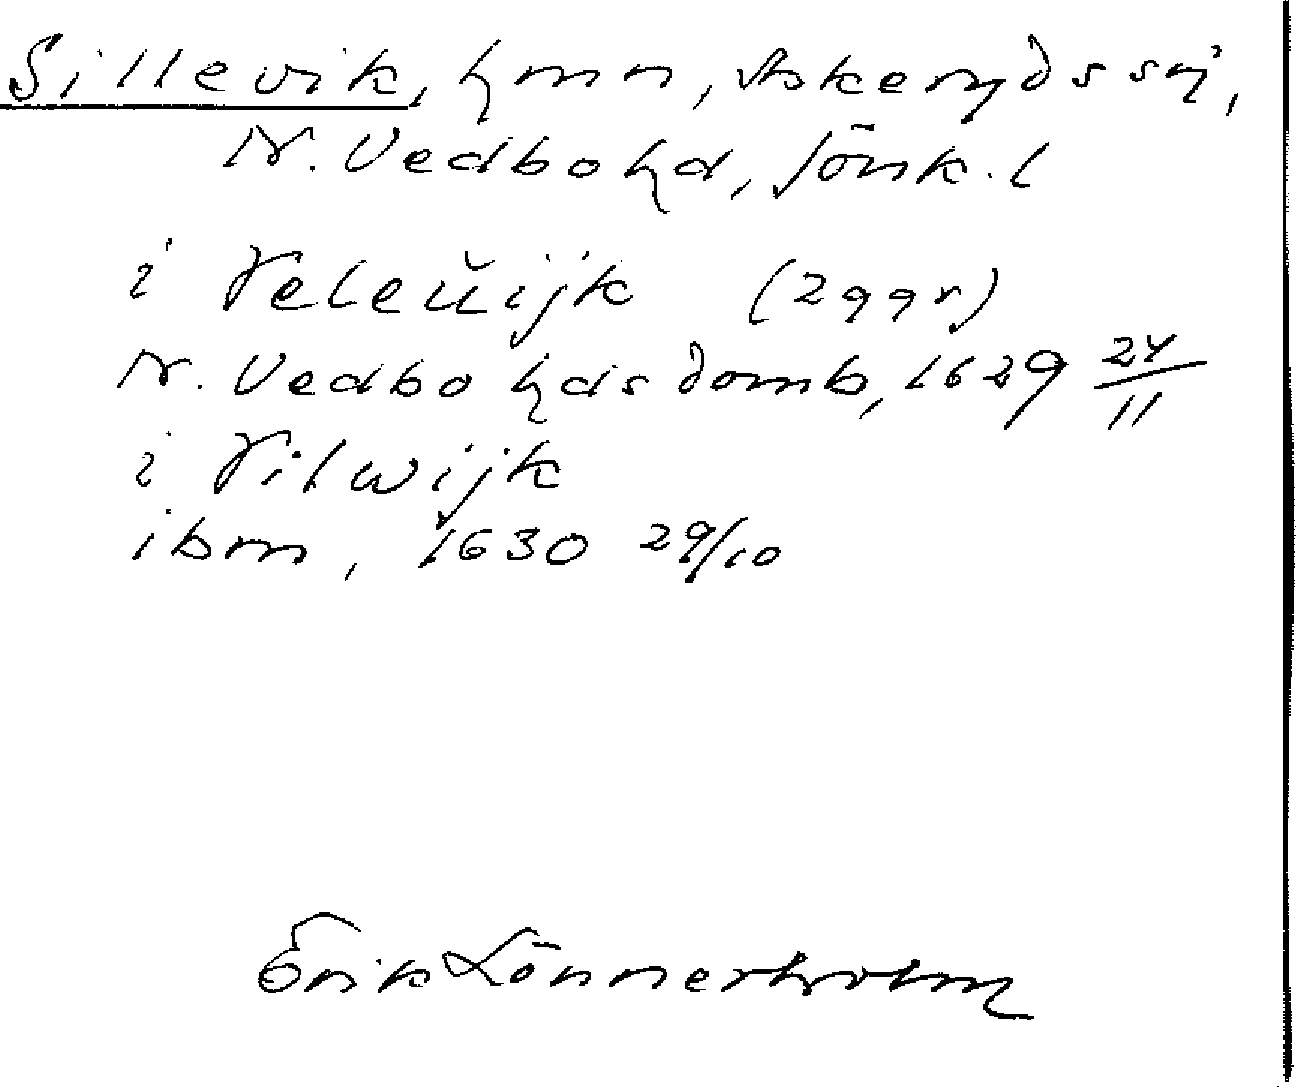 Sillevik, hmn, Askeryds sn,
N. Vedbo hd, Jönk. l
i Veleŭijk (2 ggr)
N. Vedbo hds domb, 1629 24/11
i Vilwijk
ibm, 1630 29/10
Erik Lönnerholm